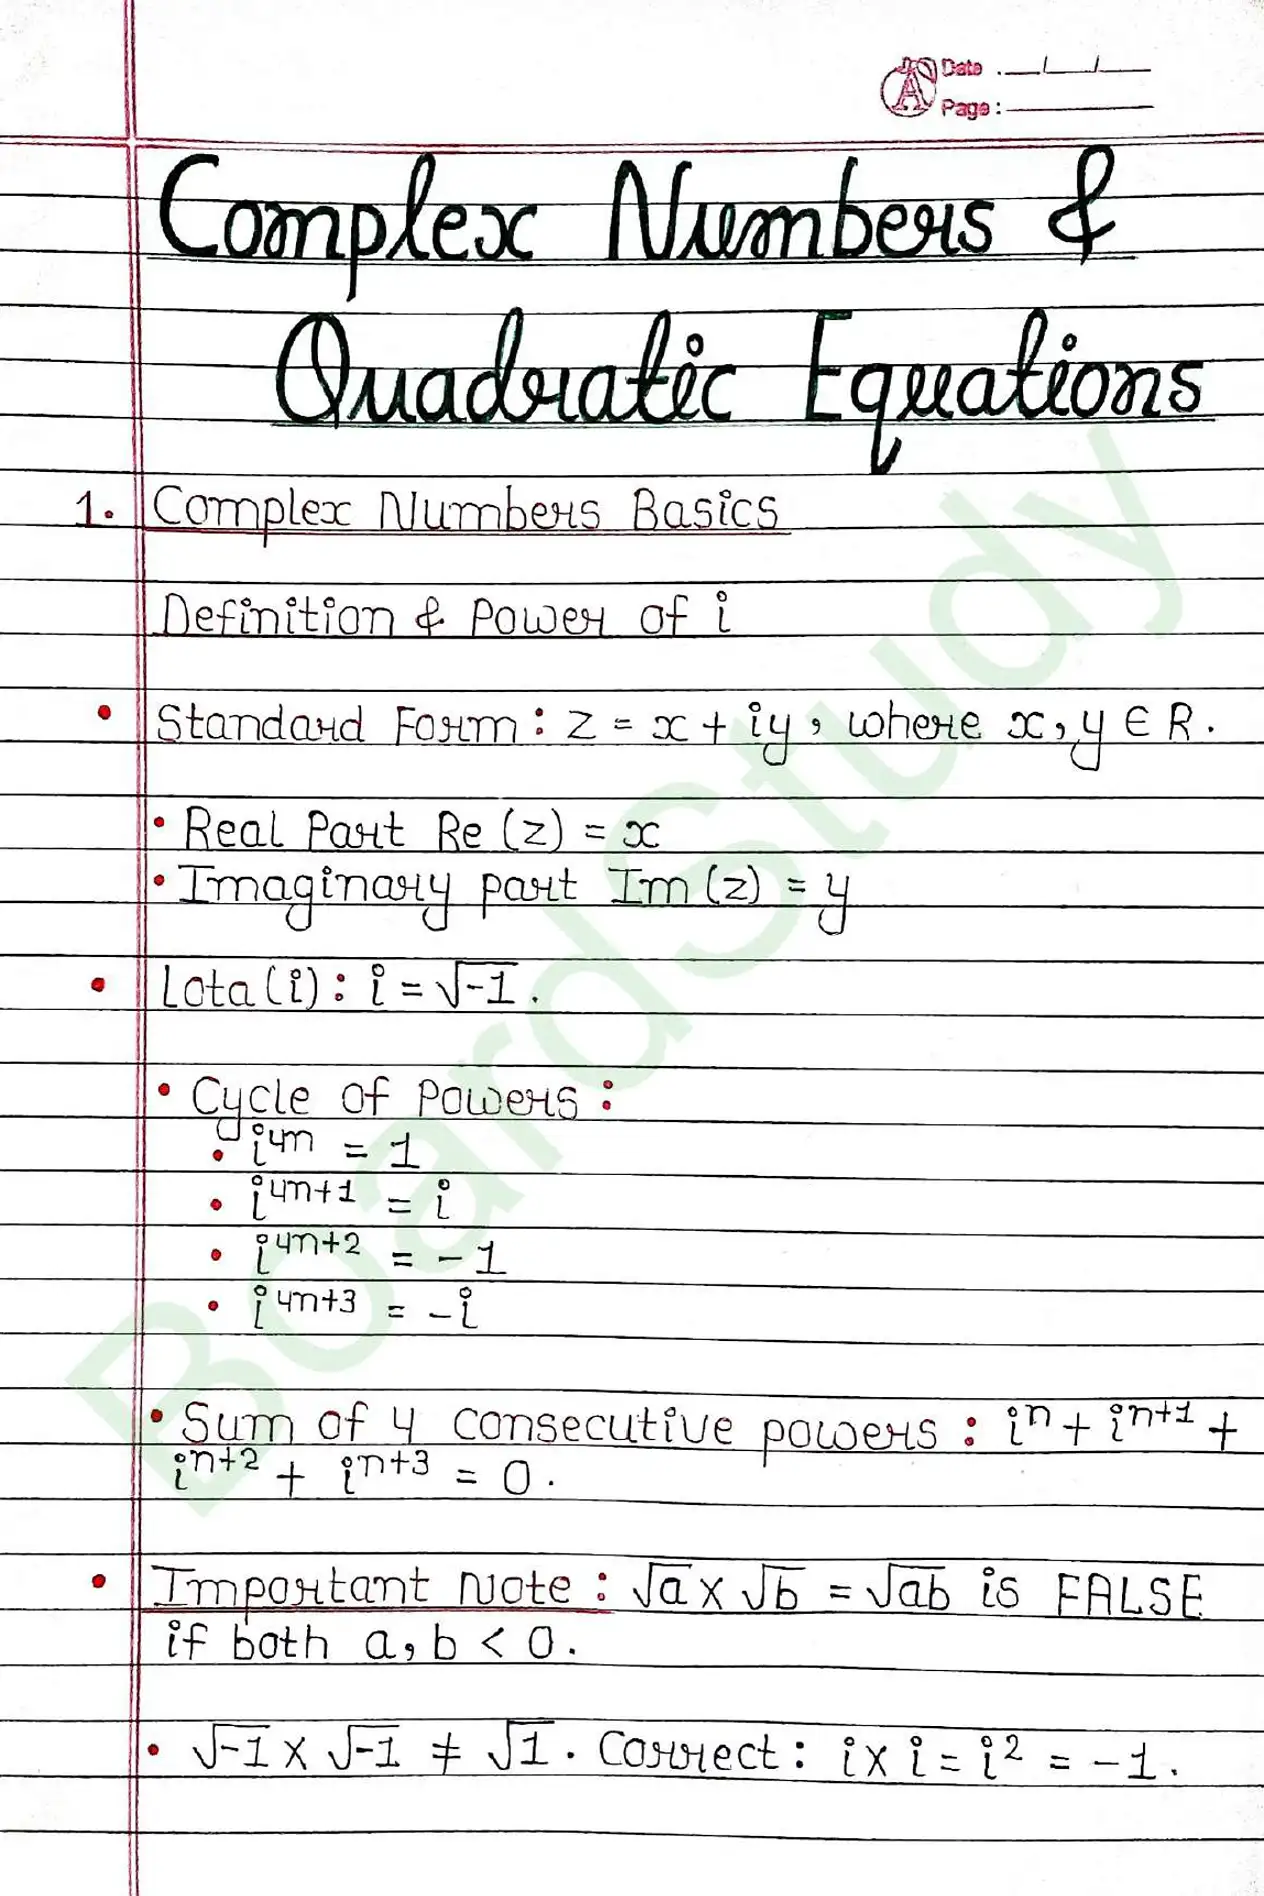 Date : __/__/__
Page :
Complex Numbers &
Quadratic Equations
1. Complex Numbers Basics
Definition & Power of i
• Standard Form : z = x + iy, where x, y ∈ R.
• Real Part Re (z) = x
• Imaginary part Im (z) = y
• Lota (i) : i = √-1.
• Cycle of Powers :
• i⁴ⁿ = 1
• i⁴ⁿ⁺¹ = i
• i⁴ⁿ⁺² = -1
• i⁴ⁿ⁺³ = -i
• Sum of 4 consecutive powers : iⁿ + iⁿ⁺¹ +
iⁿ⁺² + iⁿ⁺³ = 0.
• Important Note : √a × √b = √ab is FALSE
if both a, b < 0.
• √-1 × √-1 ≠ √1. Correct : i × i = i² = -1.
BoardStudy